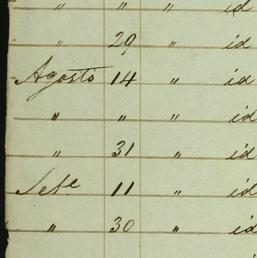 " " " id
" 29 " id
Agosto 14 " id
" " " id
" 31 " id
Sete 11 " id
" 30 " id